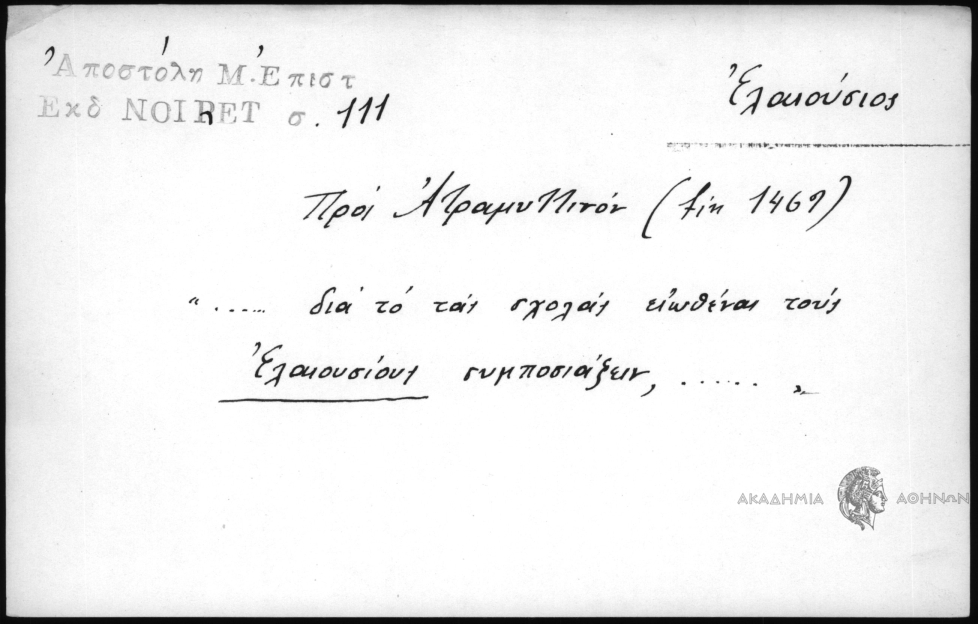 Ἀποστόλη Μ. Ἐπιστ
Ἐκδ NOIRET σ. 111
Ἐλαιούσιος
Πρὸς Ἀτραμυττινόν (fin 1469)
"...... διὰ τὸ τὰς σχολὰς εἰωθέναι τοὺς
Ἐλαιουσίους συμποσιάζειν, ...... "
ΑΚΑΔΗΜΙΑ ΑΘΗΝΩΝ